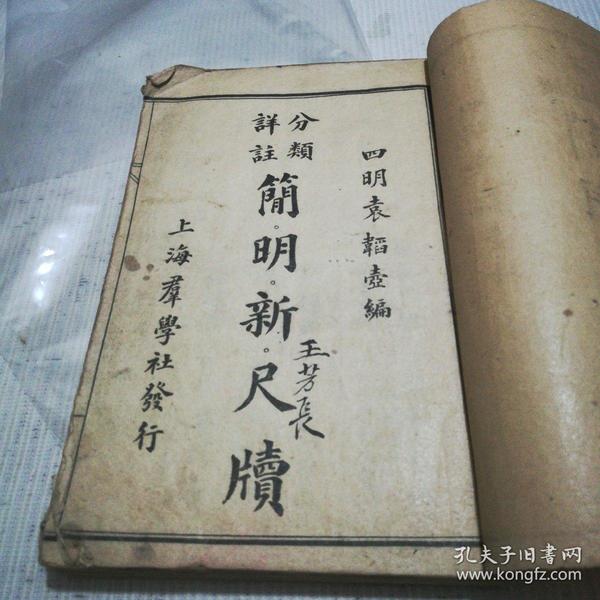 四明袁韜壺編
分類
詳註
簡明新尺牘
王芳長
上海羣學社發行
孔夫子旧书网
www.kongfz.com